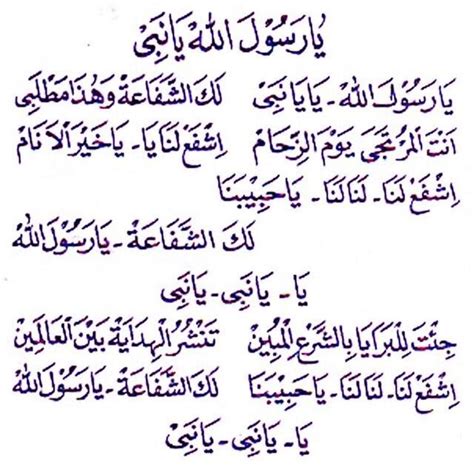 يَا رَسُوْلَ اللهْ يَا نَبِى
يَا رَسُوْلَ اللهْ - يَا يَا نَبِى لَكَ الشَّفَاعَةْ وَهٰذَا مَطْلَبِى
اَنْتَ الْمُرْتَجَى يَوْمَ الزِّحَامْ اِشْفَعْ لَنَا يَا - يَا خَيْرَ الْاَنَامْ
اِشْفَعْ لَنَا - لَنَا لَنَا - يَا حَبِيْبَنَا
لَكَ الشَّفَاعَةْ - يَا رَسُوْلَ اللهْ
يَا - يَا نَبِى - يَا نَبِى
جِئْتَ لِلْبَرَايَا بِالشَّرْعِ الْمُبِيْنْ تَنْشُرُ الْهِدَايَةْ بَيْنَ الْعَالَمِيْنْ
اِشْفَعْ لَنَا - لَنَا لَنَا - يَا حَبِيْبَنَا لَكَ الشَّفَاعَةْ - يَا رَسُوْلَ اللهْ
يَا - يَا نَبِى - يَا نَبِى